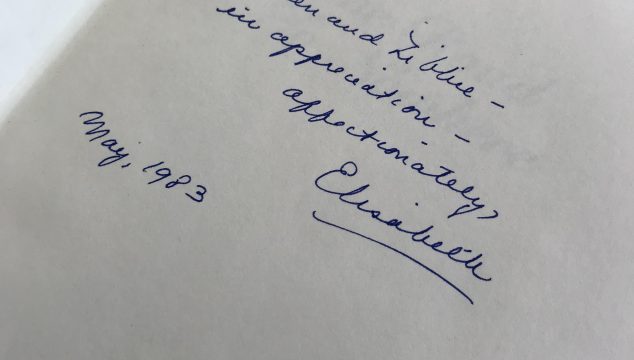 and Libbie -
in appreciation -
affectionately,
Elisabeth
May, 1983